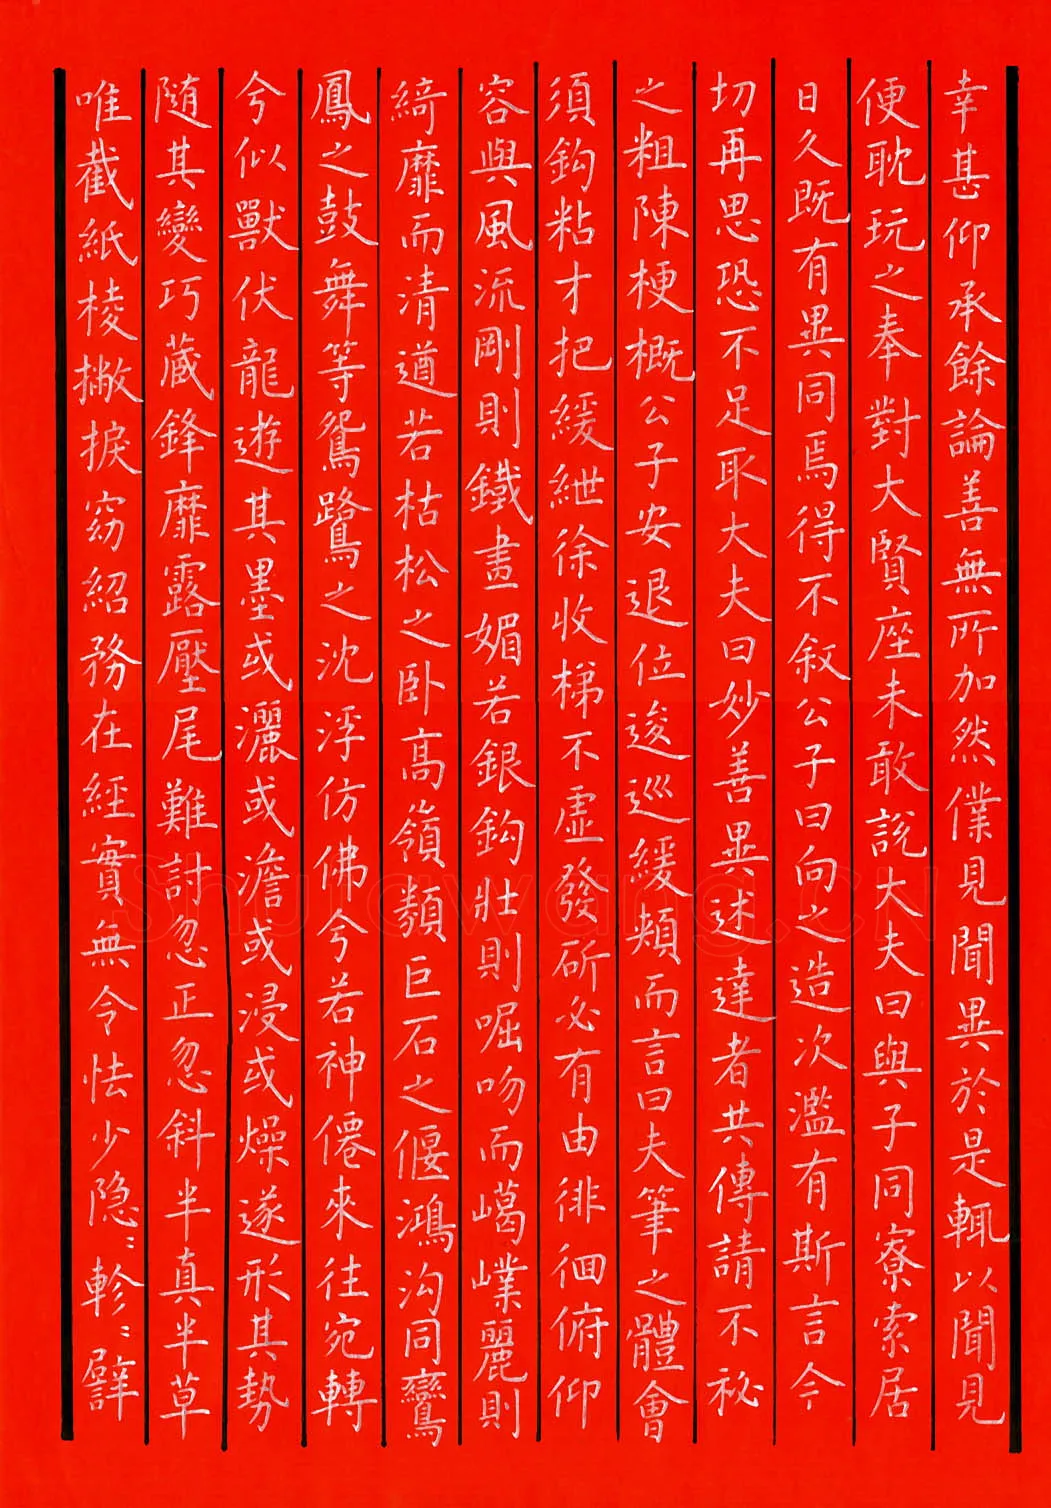 幸甚仰承餘論善無所加然僕見聞異於是輒以聞見
便耽玩之奉對大賢座未敢說大夫曰與子同寮索居
日久既有異同焉得不叙公子曰向之造次濫有斯言今
切再思恐不足取大夫曰妙善異述達者共傳請不祕
之粗陳梗概公子安退位逡巡緩頰而言曰夫筆之體會
須鈎粘才把緩紲徐收梯不虛發斫必有由徘徊俯仰
容與風流剛則鐵畫媚若銀鈎壯則啒吻而嶱嶫麗則
綺靡而清遒若枯松之卧高嶺類巨石之偃鴻沟同鸞
鳳之鼓舞等鴛鷺之沈浮仿佛兮若神僊來往宛轉
兮似獸伏龍遊其墨或灑或澹或浸或燥遂形其勢
随其變巧藏鋒靡露壓尾難討忽正忽斜半真半草
唯截紙棱撇捩窈紹務在經實無令怯少隐隐軫軫譬
ShuFaWang.CN